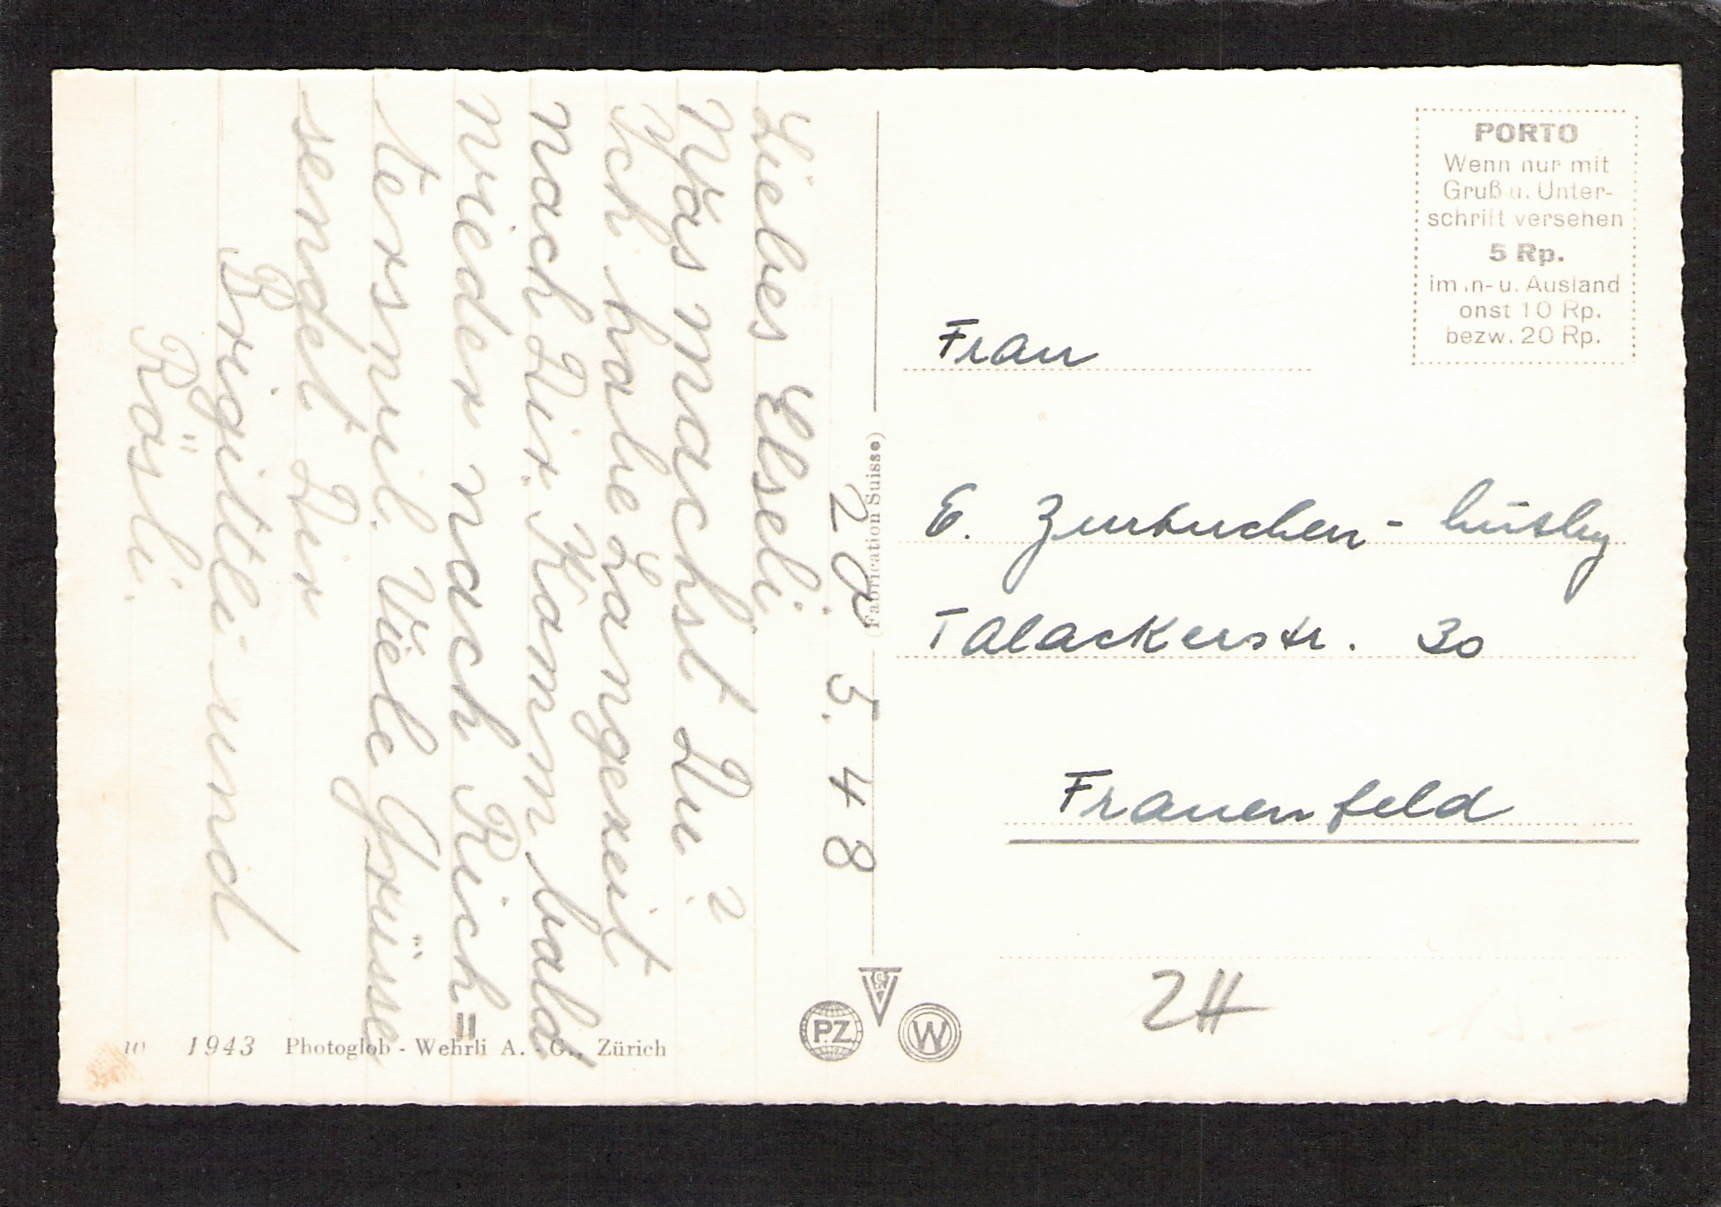 28. 5. 48
Liebes Elseli.
Was machst Du?
Ich habe Langezeit
nach Dir. Komm bald
wieder nach Rich=
terswil. Viele Grüsse
sendet Dir
Brigittli und
Rösli.
(Fabrication Suisse)
PORTO
Wenn nur mit
Gruß u. Unter-
schrift versehen
5 Rp.
im In- u. Ausland
sonst 10 Rp.
bezw. 20 Rp.
Frau
E. Zurbuchen - Lüthy
Talackerstr. 30
Frauenfeld
PZ
W
10 1943 Photoglob - Wehrli A. - G., Zürich